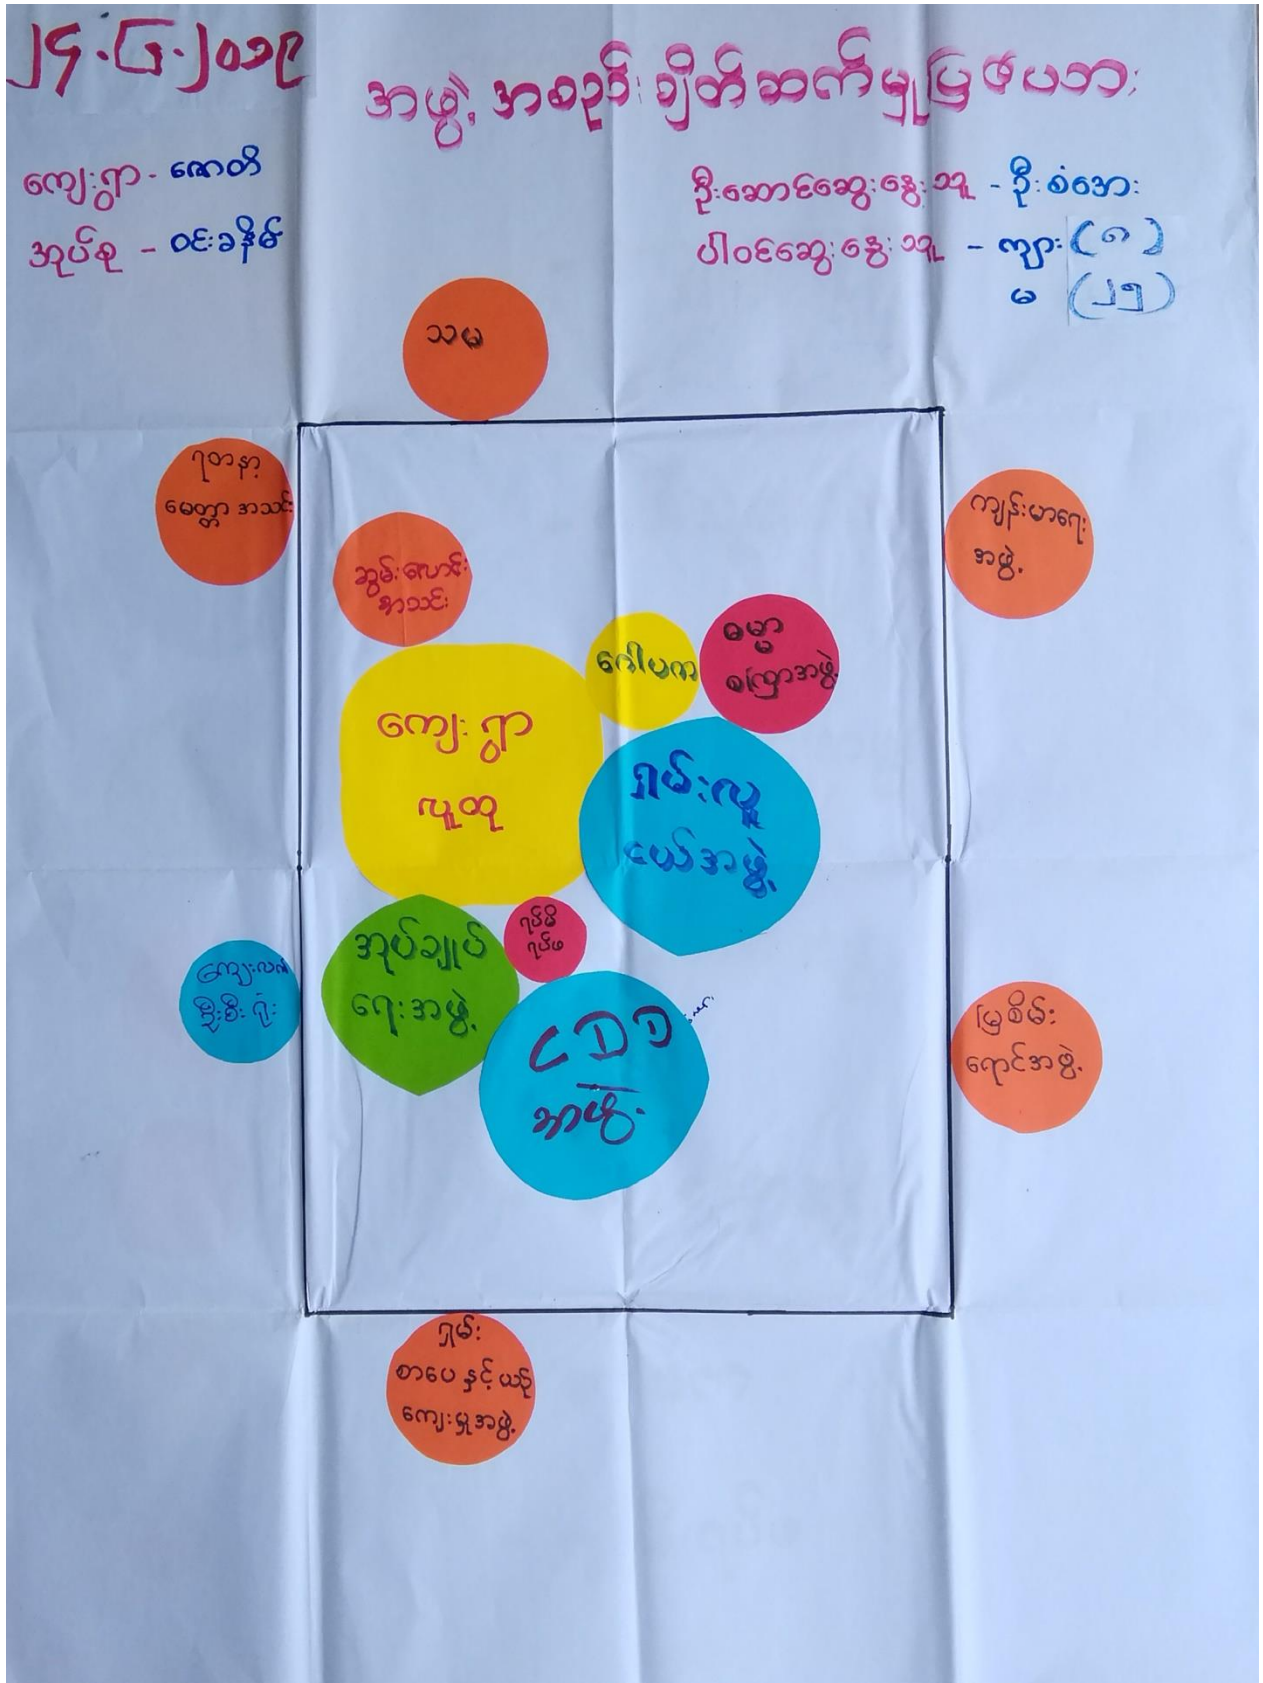 ၂၄.၆.၂၀၁၉
အဖွဲ့အစည်းချိတ်ဆက်မှုပြဖဲပဘေး
ကျေးရွာ - ဇောတိ
အုပ်စု - ဝင်းခနိမ်
ဦးဆောင်ဆွေးနွေးသူ - ဦးစံအေး
ပါဝင်ဆွေးနွေးသူ - ကျား (၈)
မ (၂၅)
သမ
ရတနာ့
မေတ္တာအသင်း
ကျန်းမာရေး
အဖွဲ့
ဆွမ်းလောင်း
အသင်း
ဂေါပက
ဓမ္မာ
စကြာအဖွဲ့
ကျေးရွာ
လူထု
ရှမ်းလူ
ငယ်အဖွဲ့
ရပ်မိ
ရပ်ဖ
အုပ်ချုပ်
ရေးအဖွဲ့
ကျေးလက်
ဦးစီးရုံး
CDD
အဖွဲ့
မြစိမ်း
ရောင်အဖွဲ့
ရှမ်း
စာပေနှင့်ယဉ်
ကျေးမှုအဖွဲ့